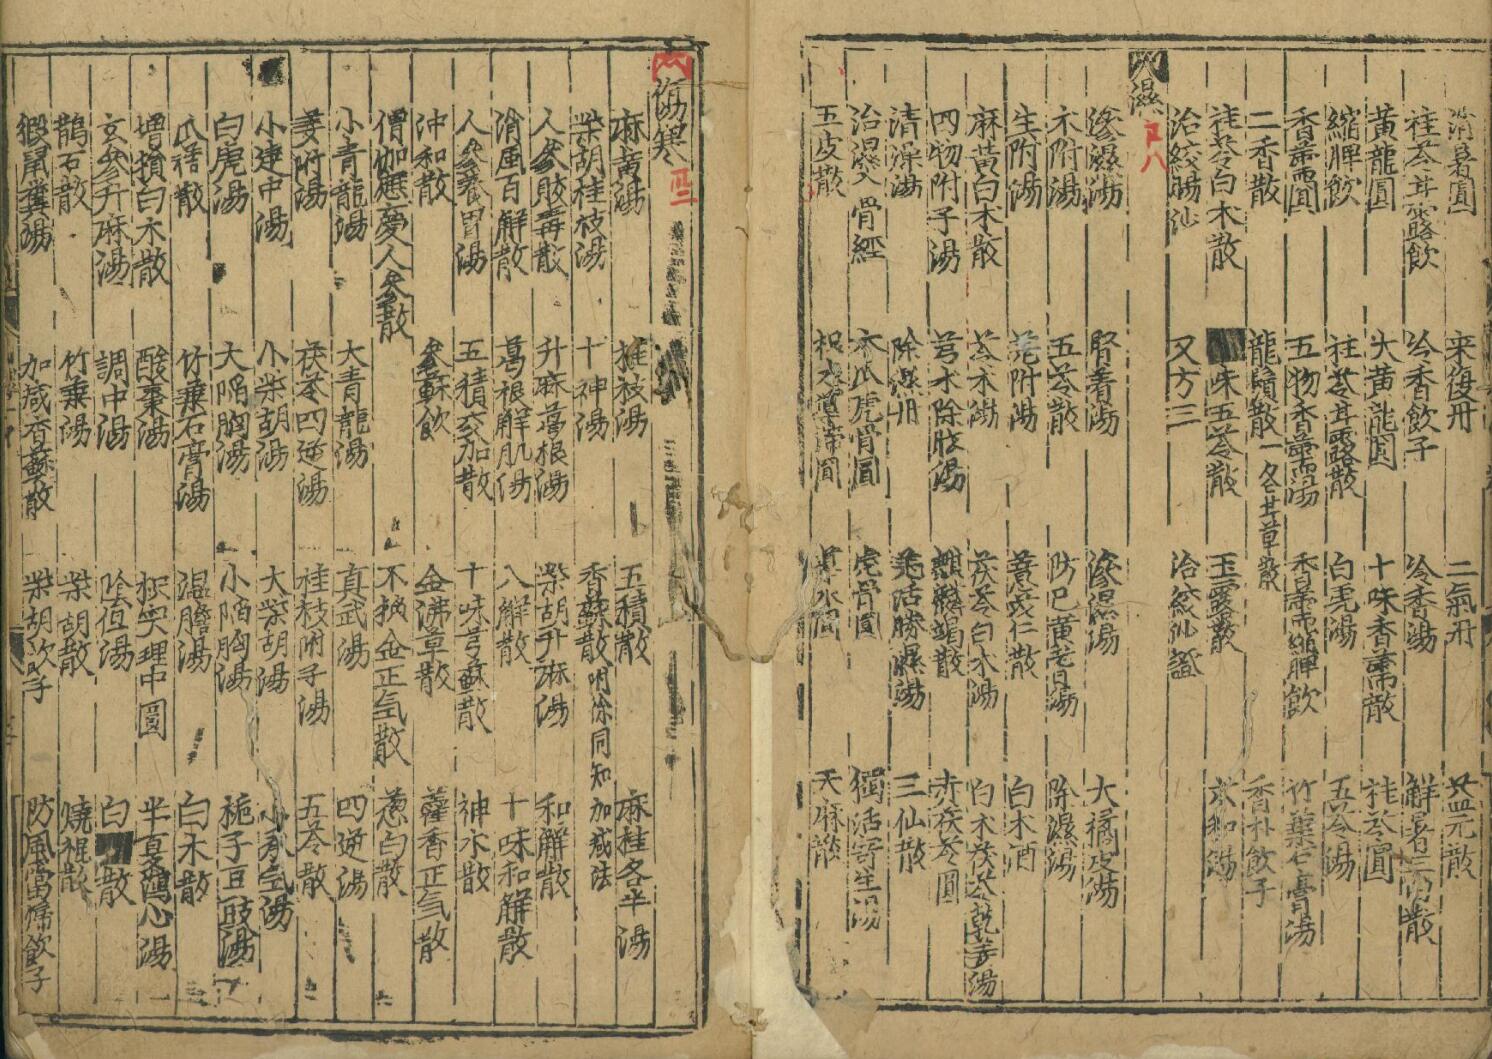 消暑圓 来復丹 二氣丹 益元散
桂苓甘露飲 冷香飲子 冷香湯 解暑三白散
黃龍圓 大黃龍圓 十味香薷散 桂苓圓
縮脾飲 桂苓甘露散 白虎湯 五苓湯
香薷圓 五物香薷湯 香薷縮脾飲 竹葉石膏湯
二香散 龍鬚散一名甘草散 香朴飲子
桂苓白朮散 味五苓散 玉露散
治絞腸沙 又方三 治
濕
滲濕湯 腎着湯 滲濕湯 大橘皮湯
朮附湯 五苓散 防已黃芪湯 除濕湯
生附湯 芪附湯 薏苡仁散 白朮酒
麻黃白朮散 苓朮湯 茯苓白朮湯 白朮茯苓乾姜湯
四物附子湯 芎朮除眩湯 麒麟竭散 赤茯苓圓
清燥湯 除濕丹 羌活勝濕湯 三仙散
治濕入骨經 木瓜虎骨圓 虎骨圓 獨活寄生湯
五皮散 圓 圓 天麻散
傷寒
麻黃湯 桂枝湯 五積散 麻桂各半湯
柴胡桂枝湯 十神湯 香蘇散附徐同知加減法
人參敗毒散 升麻葛根湯 柴胡升麻湯 和解散
消風百解散 葛根解肌湯 八解散 十味和解散
人參養胃湯 五積交加散 十味芎蘇散 神朮散
沖和散 參蘇飲 金沸草散 藿香正氣散
僧伽應夢人參散 不換金正氣散 葱白散
小青龍湯 大青龍湯 真武湯 四逆湯
姜附湯 茯苓四逆湯 桂枝附子湯 五苓散
小建中湯 小柴胡湯 大柴胡湯 小承氣湯
白虎湯 大陷胸湯 小陷胸湯 梔子豆豉湯
瓜蒂散 竹葉石膏湯 温膽湯 白朮散
增損白朮散 酸棗湯 枳实理中圓 半夏瀉心湯
玄參升麻湯 調中湯 陰旦湯 白散
鵲石散 竹葉湯 柴胡散 燒裩散
豭鼠糞湯 加減香蘇散 柴胡飲子 防風當歸飲子